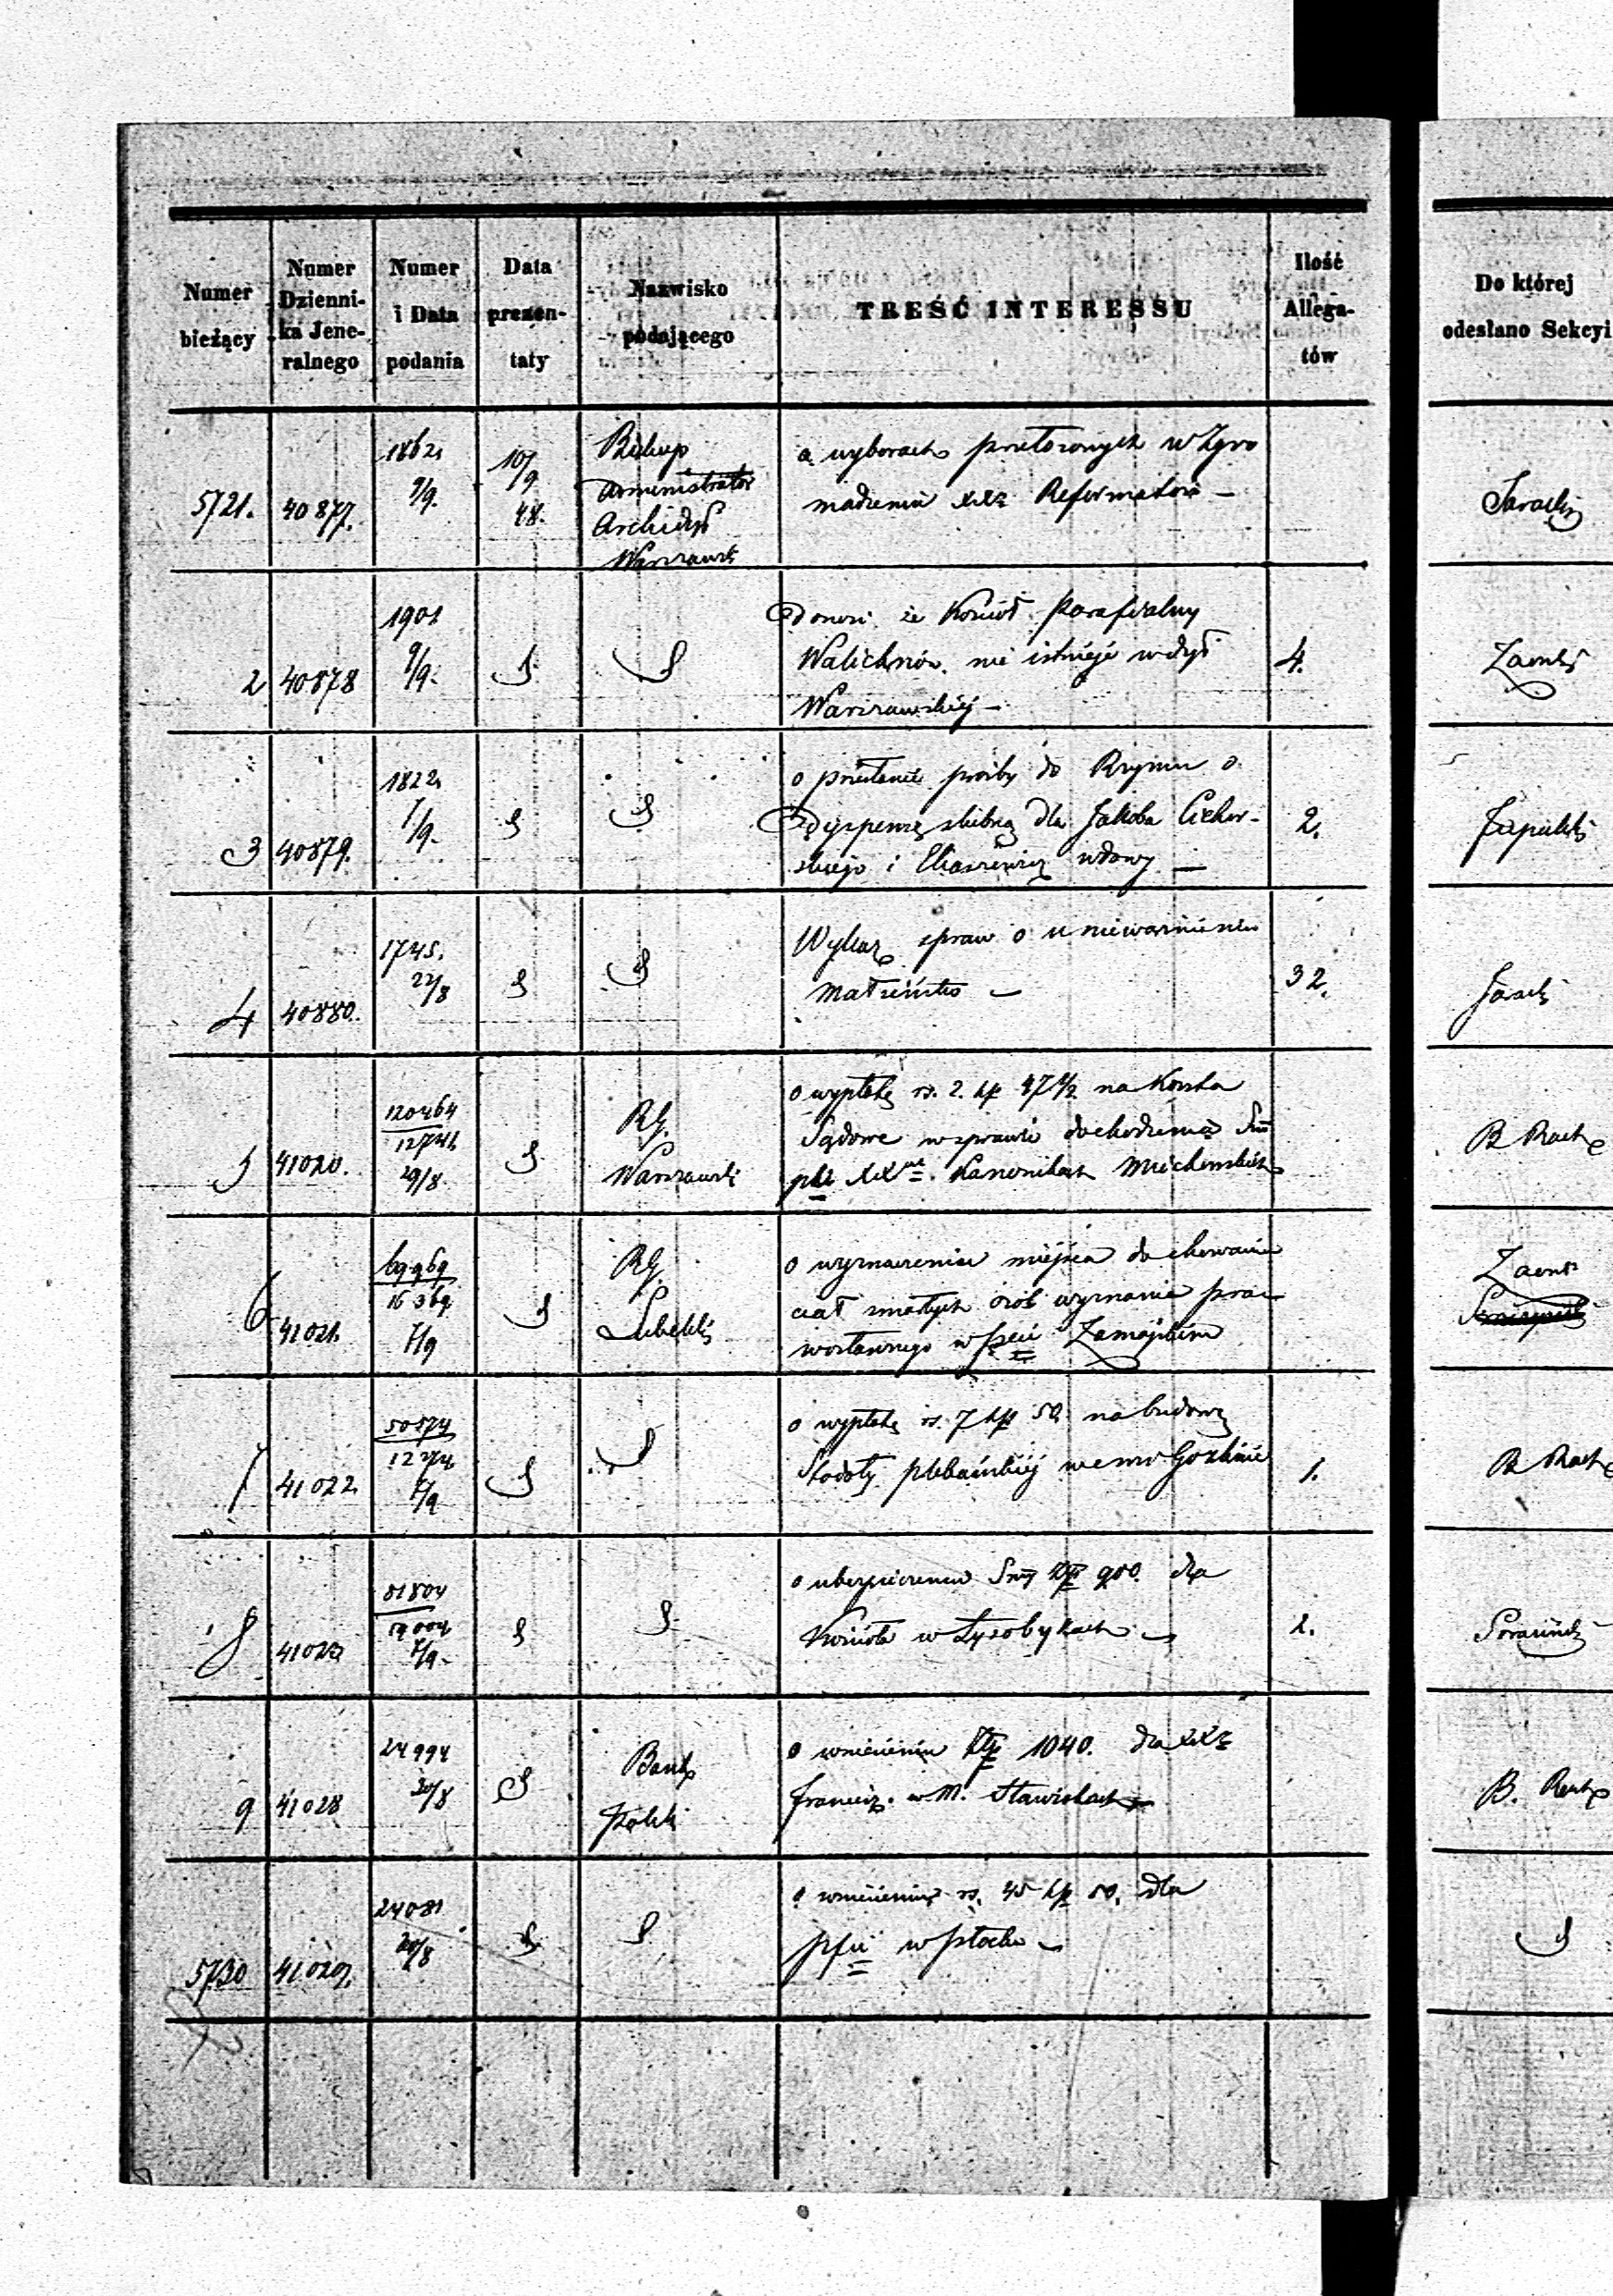 Numer bieżący
Numer Dzienni-ka Jene-ralnego
Numer i Data podania
Data prezen-taty
Nazwisko podającego
TREŚĆ INTERESSU
Ilość Allega-tów
Do której odesłano Sekcyi
5721. 40877. 1862 9/9. 10/9 48.
Biskup
Administrator
Archidyec
Warszaws
o wyborach przełożonych w Zgro
madzeniu xxz Reformatów —
2 40878 1901 9/9.
donosi że Kościół Parafialny
Walichnów nie istnieje w dyec
Warszawskiej —
4.
3 40879. 1822 7/9.
o przesłanie prośby do Rzymu o
dyspensę ślubną dla Jakoba Cichor-
skiego i Eliaszewicz wdowy —
2.
4 40880. 1745. 22/8
Wykaz spraw o unieważnieniu
Małżeństw —
32.
5 41020. 120464 12741 29/8
RG.
Warszawski
o wypłatę rs. 2. kp 47 1/2 na Koszta
Sądowe w sprawie dochodzenia
Kanonikach Miechowskich
B Rach
6 41021. 69969 16369 7/9
RG.
Lubelski
o wyznaczenie miejsca do chowania
ciał zmarłych osób wyznania pra
wosławnego w pcie Zamojskim
7 41022. 50574 1274 7/9
o wypłatę rs. 7 kp 50. na budowę
Stodoły plebańskiej we wsi
1.
B Rach
8 41023 81804 7/9.
o ubezpieczeniu Sum Złp 900. dla
Kościoła w Łysobykach —
1.
9 41028 24994 30/8
Bank
Polski
o wniesieniu Złp 1040. dla xxz
Francisz. w M. Stawiskach —
B. Rach
5730 41029. 24081 30/8
o wniesieniu rs. 45 kp 50. dla
w płocku —